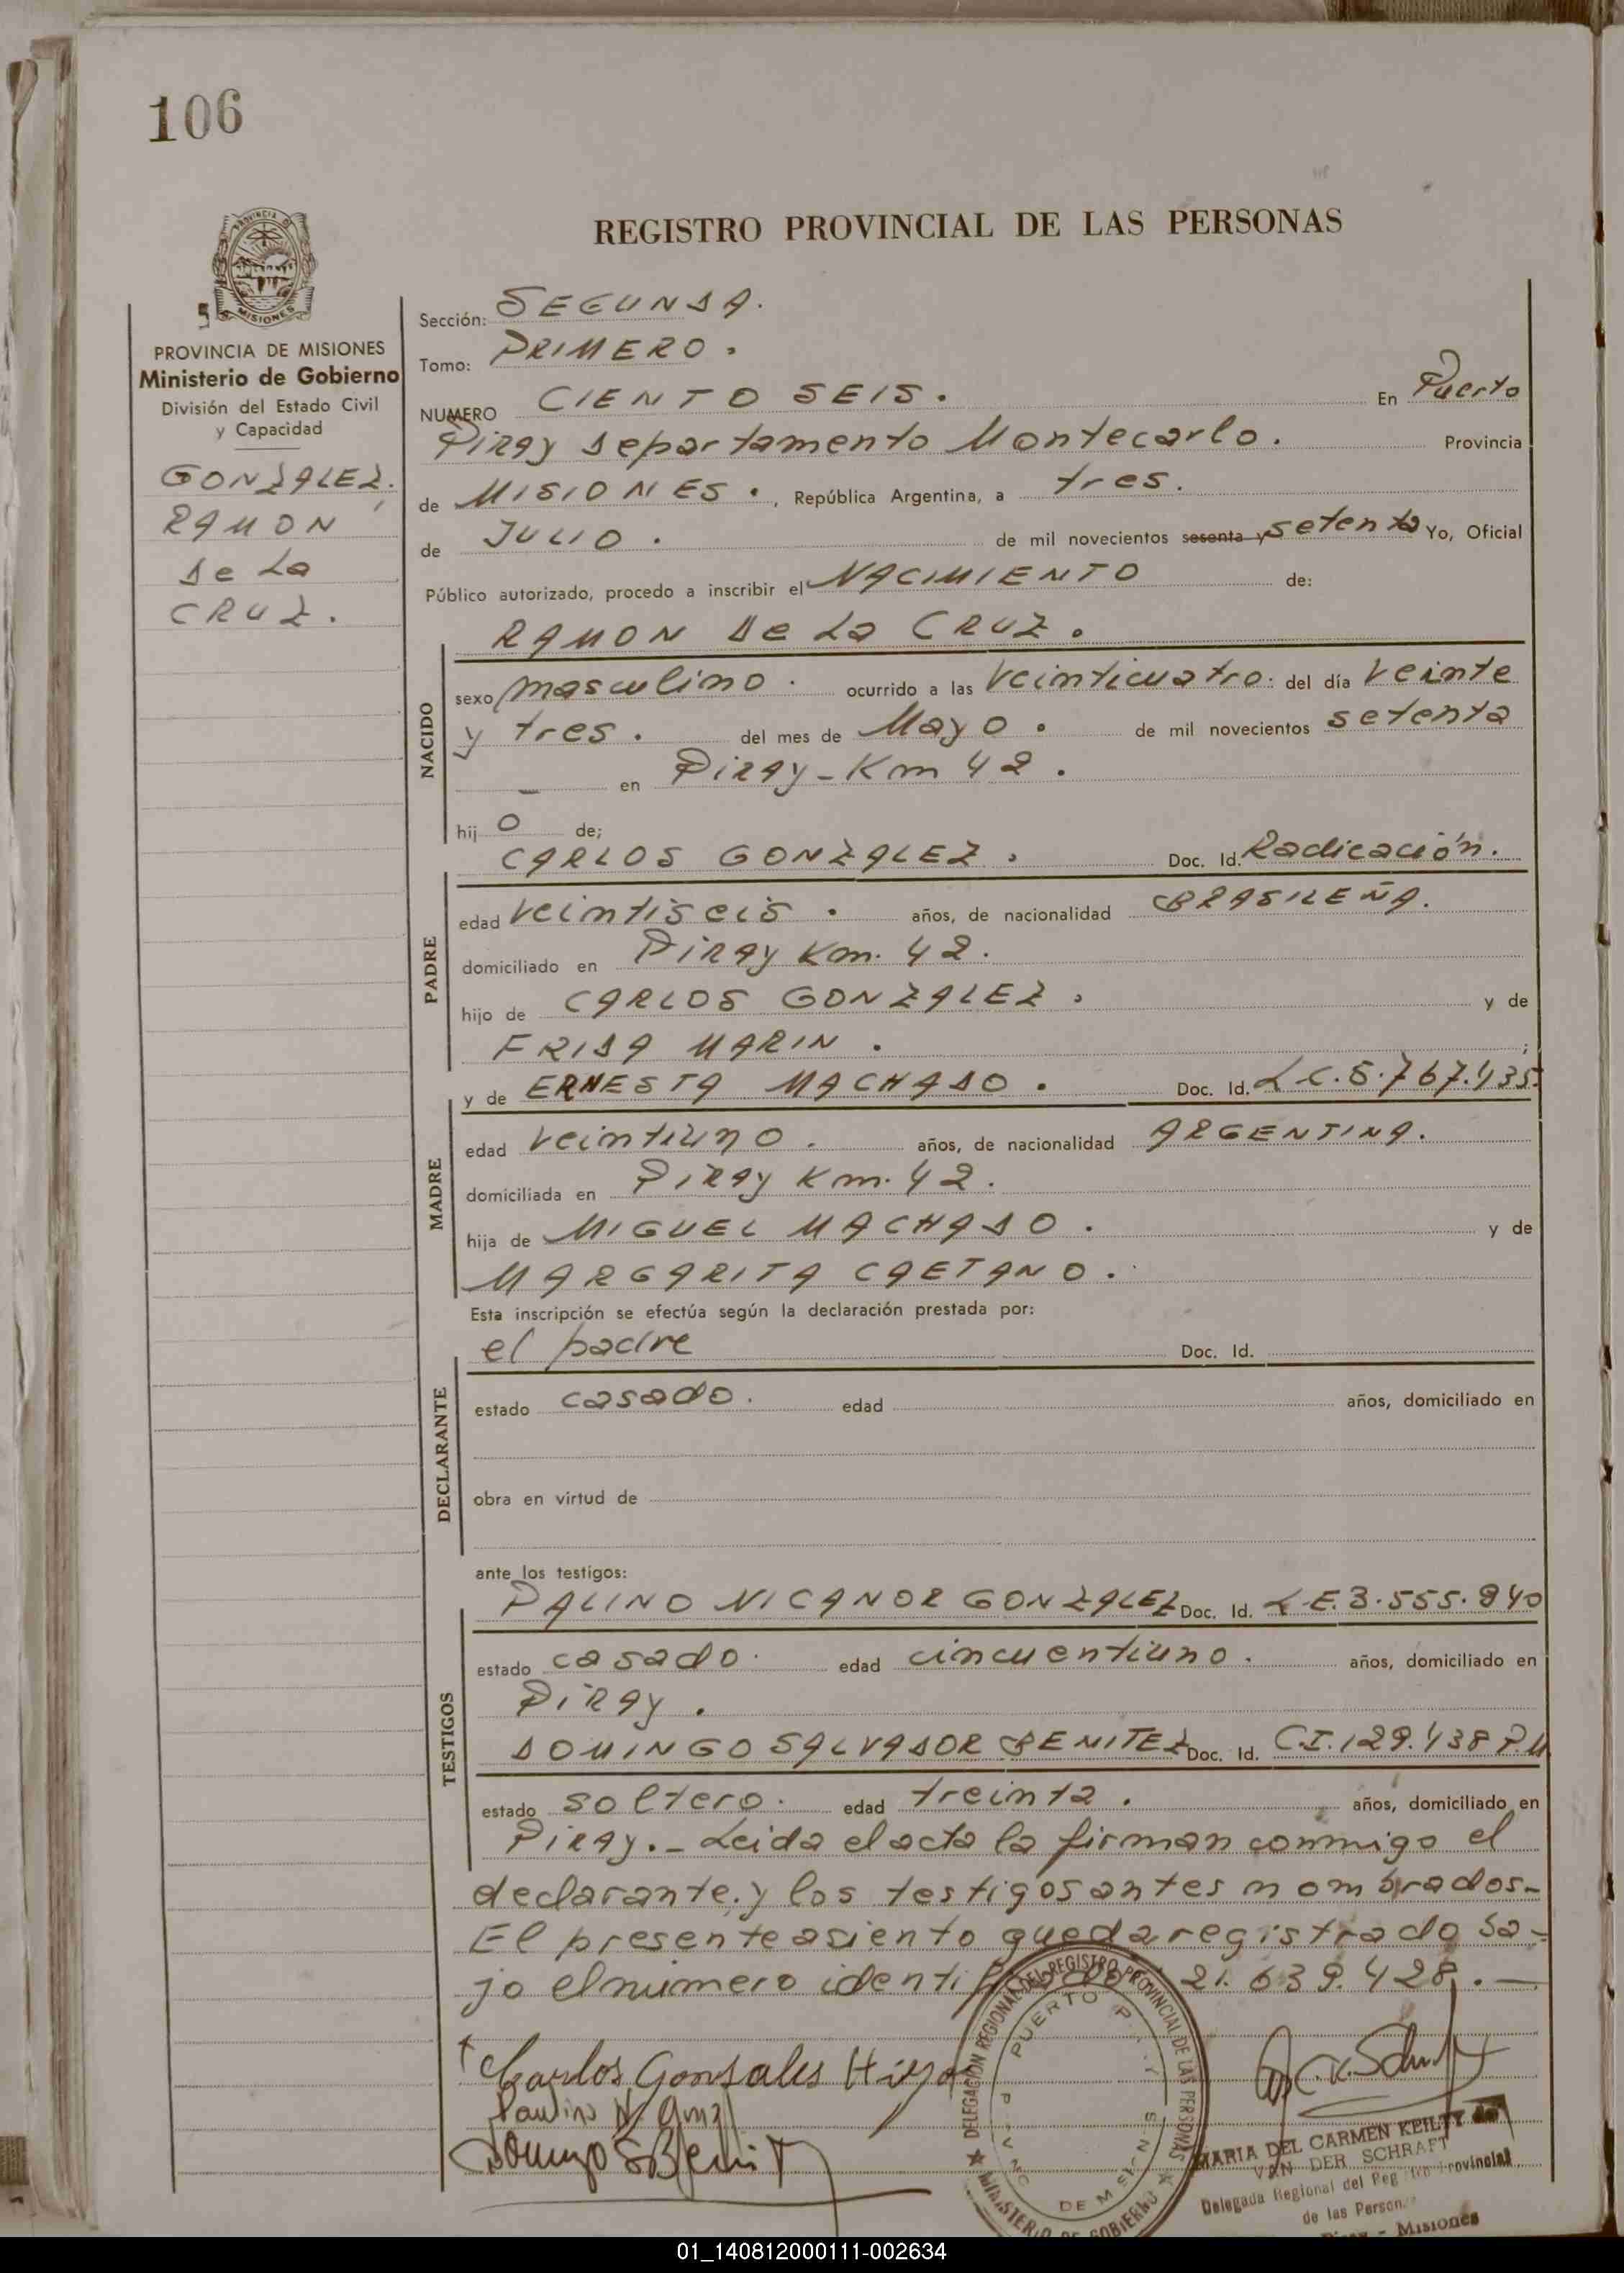 106
REGISTRO PROVINCIAL DE LAS PERSONAS
MISIONES
PROVINCIA DE MISIONES
Ministerio de Gobierno
División del Estado Civil
y Capacidad
GONZALEZ.
RAMON
De La
CRUZ.
Sección: SEGUNDA.
Tomo: PRIMERO.
NUMERO CIENTO SEIS. En Puerto
Piray Departamento Montecarlo. Provincia
de MISIONES., República Argentina, a tres.
de JULIO. de mil novecientos sesenta y setenta Yo, Oficial
Público autorizado, procedo a inscribir el NACIMIENTO de:
RAMON De La CRUZ.
NACIDO
sexo masculino. ocurrido a las veinticuatro. del día veinte
y tres. del mes de Mayo. de mil novecientos setenta
— en Piray-Km 42.
hij o de;
CARLOS GONZALEZ. Doc. Id. Radicación.
PADRE
edad veintiseis. años, de nacionalidad BRASILEÑA.
domiciliado en Piray Km. 42.
hijo de CARLOS GONZALEZ. y de
FRIDA MARIN. ;
y de ERNESTA MACHADO. Doc. Id. L.C.6.767.435.
MADRE
edad veintiuno. años, de nacionalidad ARGENTINA.
domiciliada en Piray Km. 42.
hija de MIGUEL MACHADO. y de
MARGARITA CAETANO.
Esta inscripción se efectúa según la declaración prestada por:
el padre Doc. Id.
DECLARANTE
estado casado. edad años, domiciliado en
obra en virtud de
ante los testigos:
PALINO NICANOR GONZALEZ Doc. Id. L.E.3.555.940
TESTIGOS
estado casado. edad cincuentiuno. años, domiciliado en
Piray.
DOMINGO SALVADOR BENITEZ Doc. Id. C.I.129.438 P.M
estado soltero. edad treinta. años, domiciliado en
Piray.- Leida el acta la firman conmigo el
declarante y los testigos antes nombrados-
El presente asiento queda registrado ba-
jo el número 21.639.428.—
Carlos Gonsales
DELEGACION REGIONAL DEL REGISTRO PROVINCIAL DE LAS PERSONAS
MINISTERIO DE GOBIERNO
PUERTO
MARIA DEL CARMEN KEILTY de
VAN DER SCHRAFT
Delegada Regional del Provincial
de las Person.
- Misiones
01_140812000111-002634